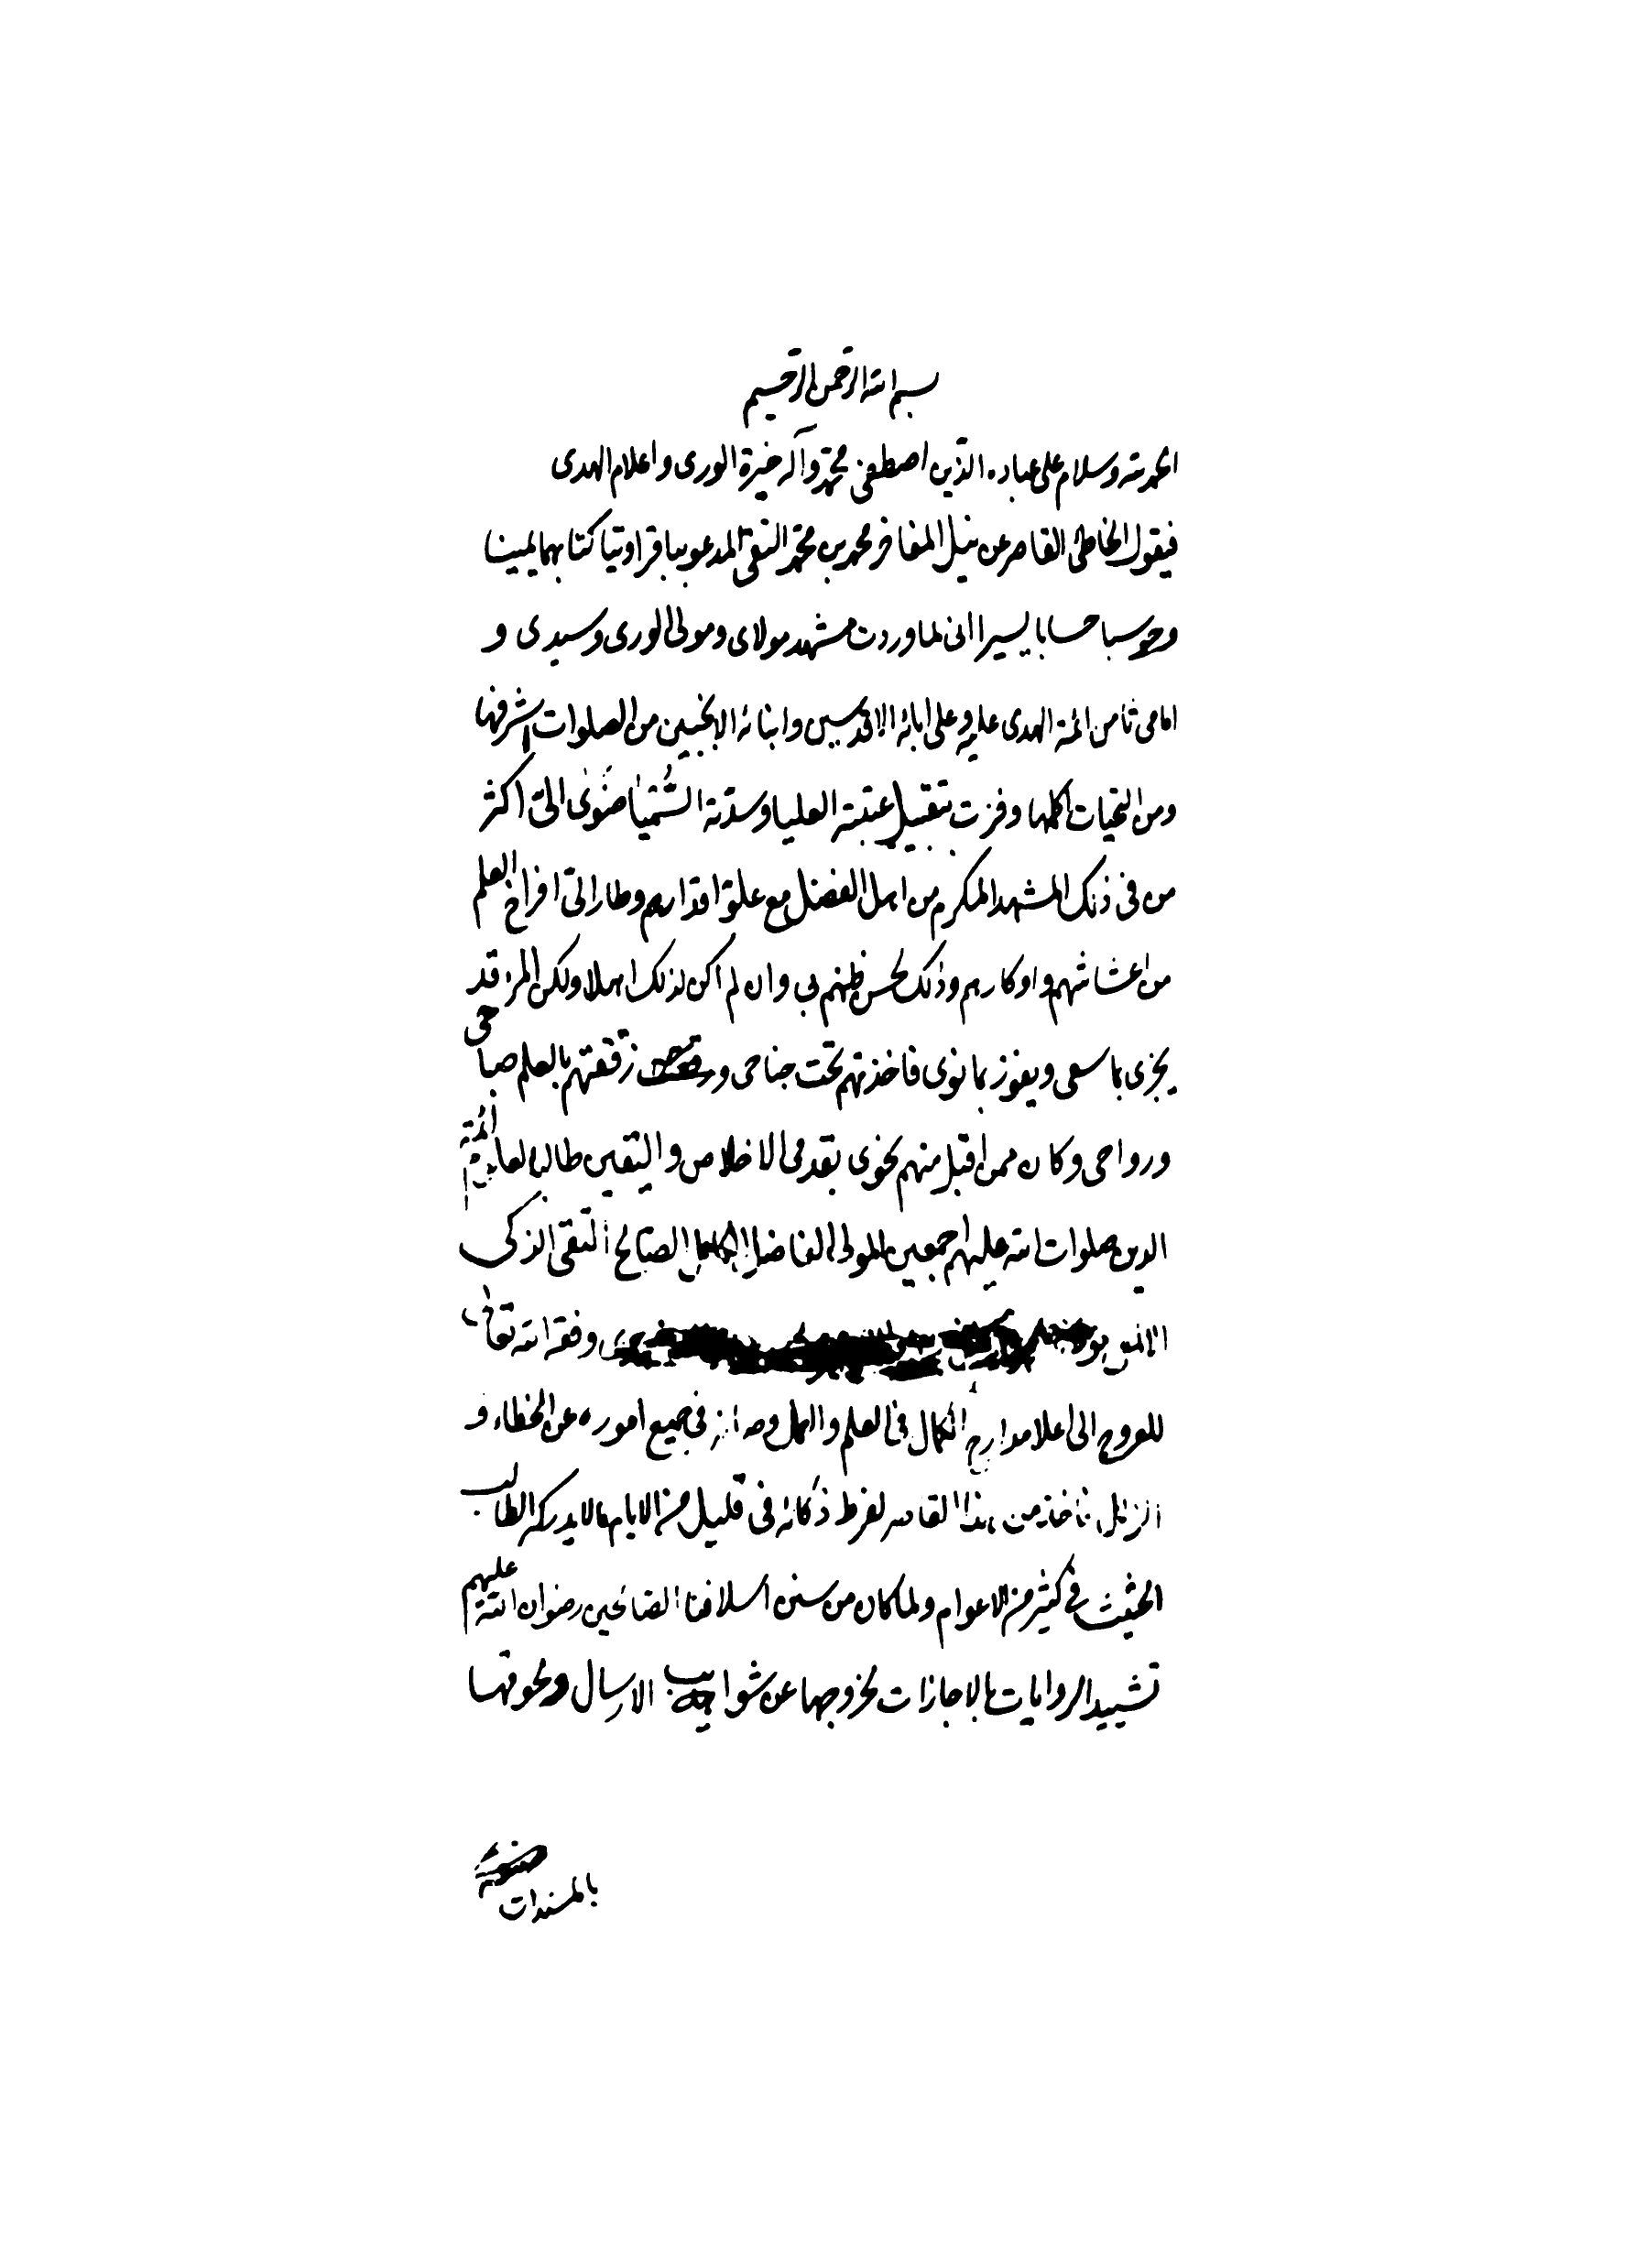 بسم الله الرحمن الرحيم
الحمد لله وسلام على عباده الذين اصطفى محمد وآله خيرة الورى واعلام الهدى
فيقول الخاطئ القاصر عن نيل المفاخر محمد بن محمد التقى المدعو بباقر اوتيا كتابهما يمينا
وحوسبا حسابا يسيرا انى لما وردت مشهد مولاى ومولى الورى وسيدى و
امامى ثامن ائمة الهدى عليه وعلى ابائه الاقدسين وابنائه الانجبين من الصلوات اشرفها
ومن التحيات اكملها وفزت بتقبيل عتبته العليا وسدته الشمياء ضوى الىّ اكثر
من فى ذلك المشهد المكرم من اهل الفضل مع علو اقدارهم وطار الىّ افراخ العلم
من اعشاشهم و اوكارهم وذلك لحسن ظنهم بى وان لم اكن لذلك اهلا ولكن المرء قد
يجزى بما سعى ويفوز بما نوى فاخذتهم تحت جناحى و زققتهم بالعلم صباحى
ورواحى وكان ممن اقبل منهم نحوى بقدمى الاخلاص واليقين طالبا لعلوم ائمة
الدين صلوات الله عليهم اجمعين المولى الفاضل الكامل الصالح التقى الزكى
وفقه الله تعالى
للعروج الى اعلا مدارج الكمال فى العلم والعمل وصانه فى جميع اموره عن الخطاء و
الزلل فاخذ من هذا القاصر لفرط ذكائه فى قليل من الايام ما لا يدركه الطالب
الحثيث فى كثير من الاعوام ولما كان من سنن اسلافنا الصالحين رضوان الله عليهم
تشييد الروايات بالاجازات لخروجها عن شوايب الارسال ولحوقها
بالمسندات